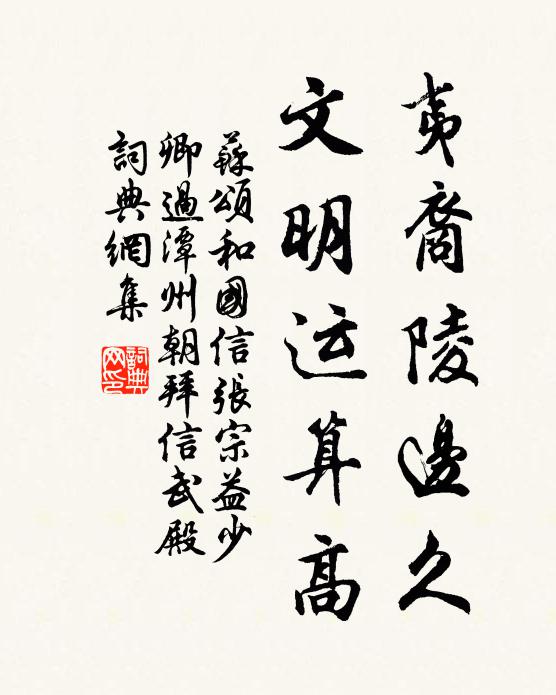 夷裔陵邊久
文明运算高
蘇頌和國信張宗益少
卿過潭州朝拜信武殿
詞典網集
詞典
网印